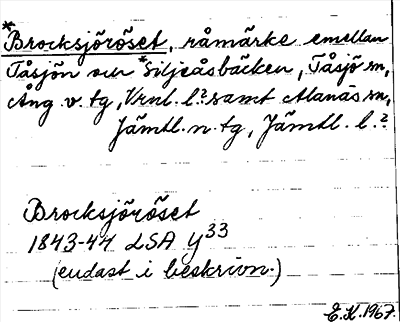 *Brocksjöröset, råmärke emellan
Tåsjön och *Siljeåsbäcken, Tåsjö sn,
Ång. v. tg, Vrnl. l.? samt Alanäs sn,
Jämtl. n. tg, Jämtl. l.?
Brocksjöröset
1843-44 LSA Y33
(endast i beskrivn.)
E.K. 1967.